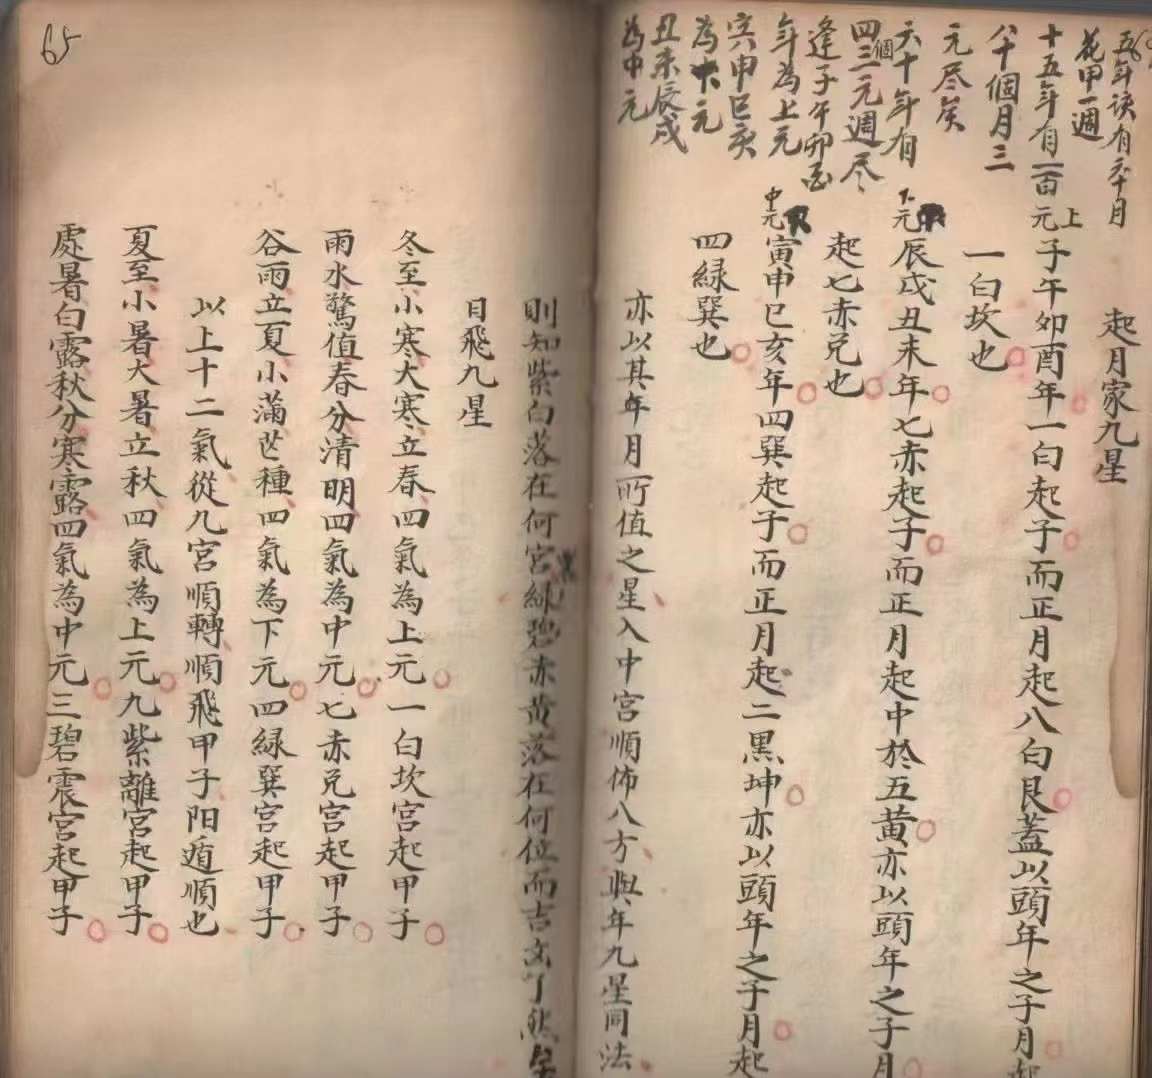 五年該有六十月
花甲一週
十五年有一百
八十個月三
元尽矣
六十年有
四個三元週尽
逢子午卯酉
年為上元
寅申巳亥
為中元
丑未辰戌
為中元
起月家九星
上元子午卯酉年一白起子而正月起八白艮蓋以頭年之子月起
一白坎也
下元辰戌丑未年七赤起子而正月起中於五黄亦以頭年之子月
起七赤兑也
中元寅申巳亥年四巽起子而正月起二黑坤亦以頭年之子月起
四緑巽也
亦以其年月所值之星入中宮順佈八方與年九星同法
則知紫白落在何宮緑碧赤黄落在何位而吉凶了然
日飛九星
冬至小寒大寒立春四氣為上元一白坎宮起甲子
雨水驚值春分清明四氣為中元七赤兑宮起甲子
谷雨立夏小滿芒種四氣為下元四緑巽宮起甲子
以上十二氣從九宮順轉順飛甲子阳遁順也
夏至小暑大暑立秋四氣為上元九紫離宮起甲子
處暑白露秋分寒露四氣為中元三碧震宮起甲子
65